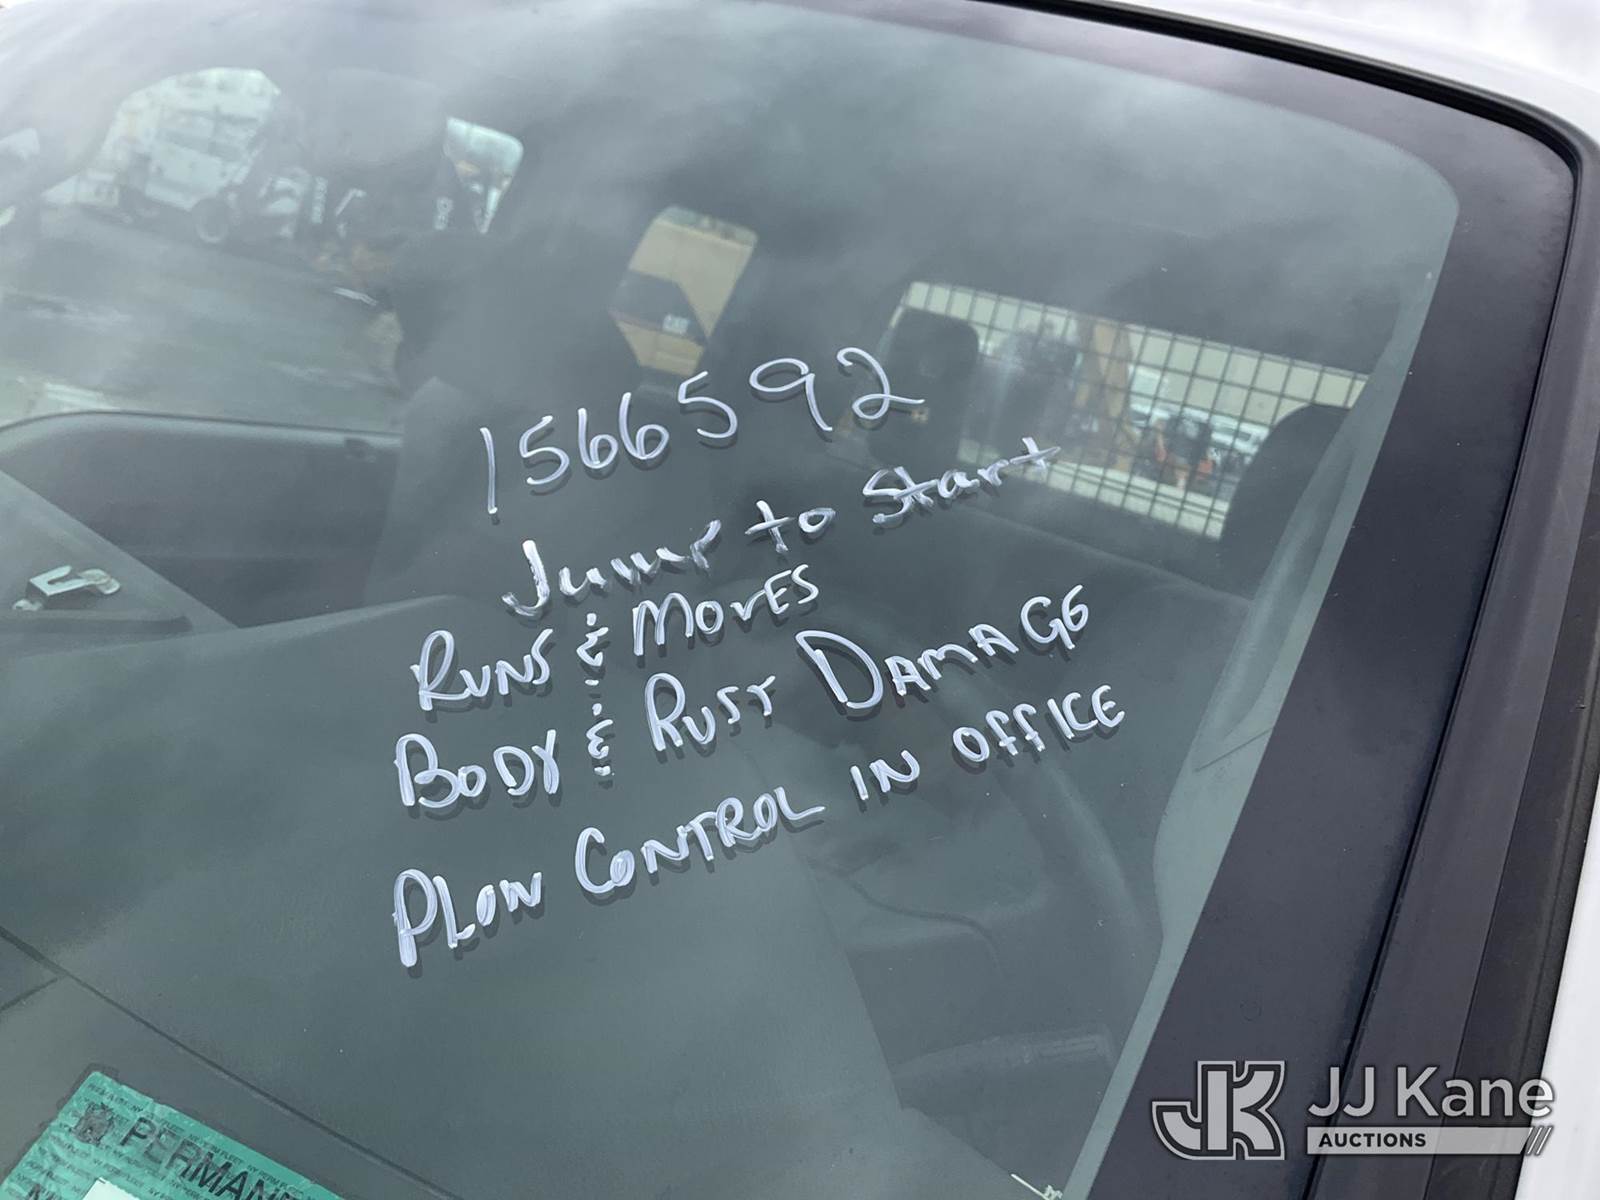 1566592
Jump to Start
RUNS & MOVES
BODY & RUST DAMAGE
PLOW CONTROL IN OFFICE
PERMAN
JJ Kane
AUCTIONS
CAT